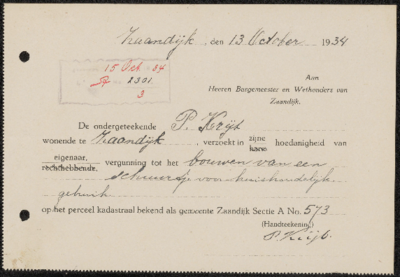 Zaandijk, den 13 October 1934
15 Oct. 34
2301
3
Aan
Heeren Burgemeester en Wethouders van
Zaandijk.
De ondergeteekende P. Krijt
wonende te Zaandijk, verzoekt in zijne hare hoedanigheid van
eigenaar, rechthebbende, vergunning tot het bouwen van een
schuurtje voor huishoudelijk
gebruik
op het perceel kadastraal bekend als gemeente Zaandijk Sectie A No. 573
(Handteekening)
P. Krijt.